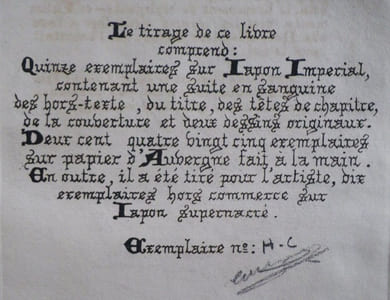 Le tirage de ce libre
comprend :
Quinze exemplaires sur Iapon Imperial,
contenant une suite en sanguine
des hors-texte, du titre, des têtes de chapitre,
de la couverture et deux dessins originaux.
Deux cent quatre vingt cinq exemplaires
sur papier d'Auvergne fait à la main.
En outre, il a été tiré pour l'artiste, dix
exemplaires hors commerce sur
Iapon supernacré.
Exemplaire nº: H-C